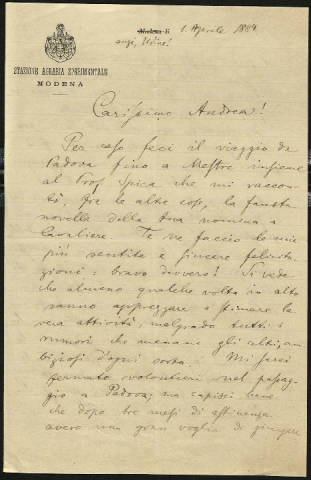 Modena li 1. Aprile 1884
anzi,
STAZIONE AGRARIA SPERIMENTALE
MODENA
Carissimo Andrea!
Per caso feci il viaggio da
Padova fino a Mestre insieme
al Prof Spica che mi raccon-
tò, fra le altre cose, la fausta
novella della tua nomina a
Cavaliere. Te ne faccio le mie
più sentite e sincere felicita-
zioni; bravo davvero! Si vede
che almeno qualche volta in alto
sanno apprezzare e stimare la
vera attività, malgrado tutti i
rumori che menano gli altri, am-
biziosi d'ogni sorta. Mi sarei
fermato volontieri nel passag-
gio a Padova; ma capisci bene
che dopo tre mesi di astinenza
avevo una gran voglia di giungere